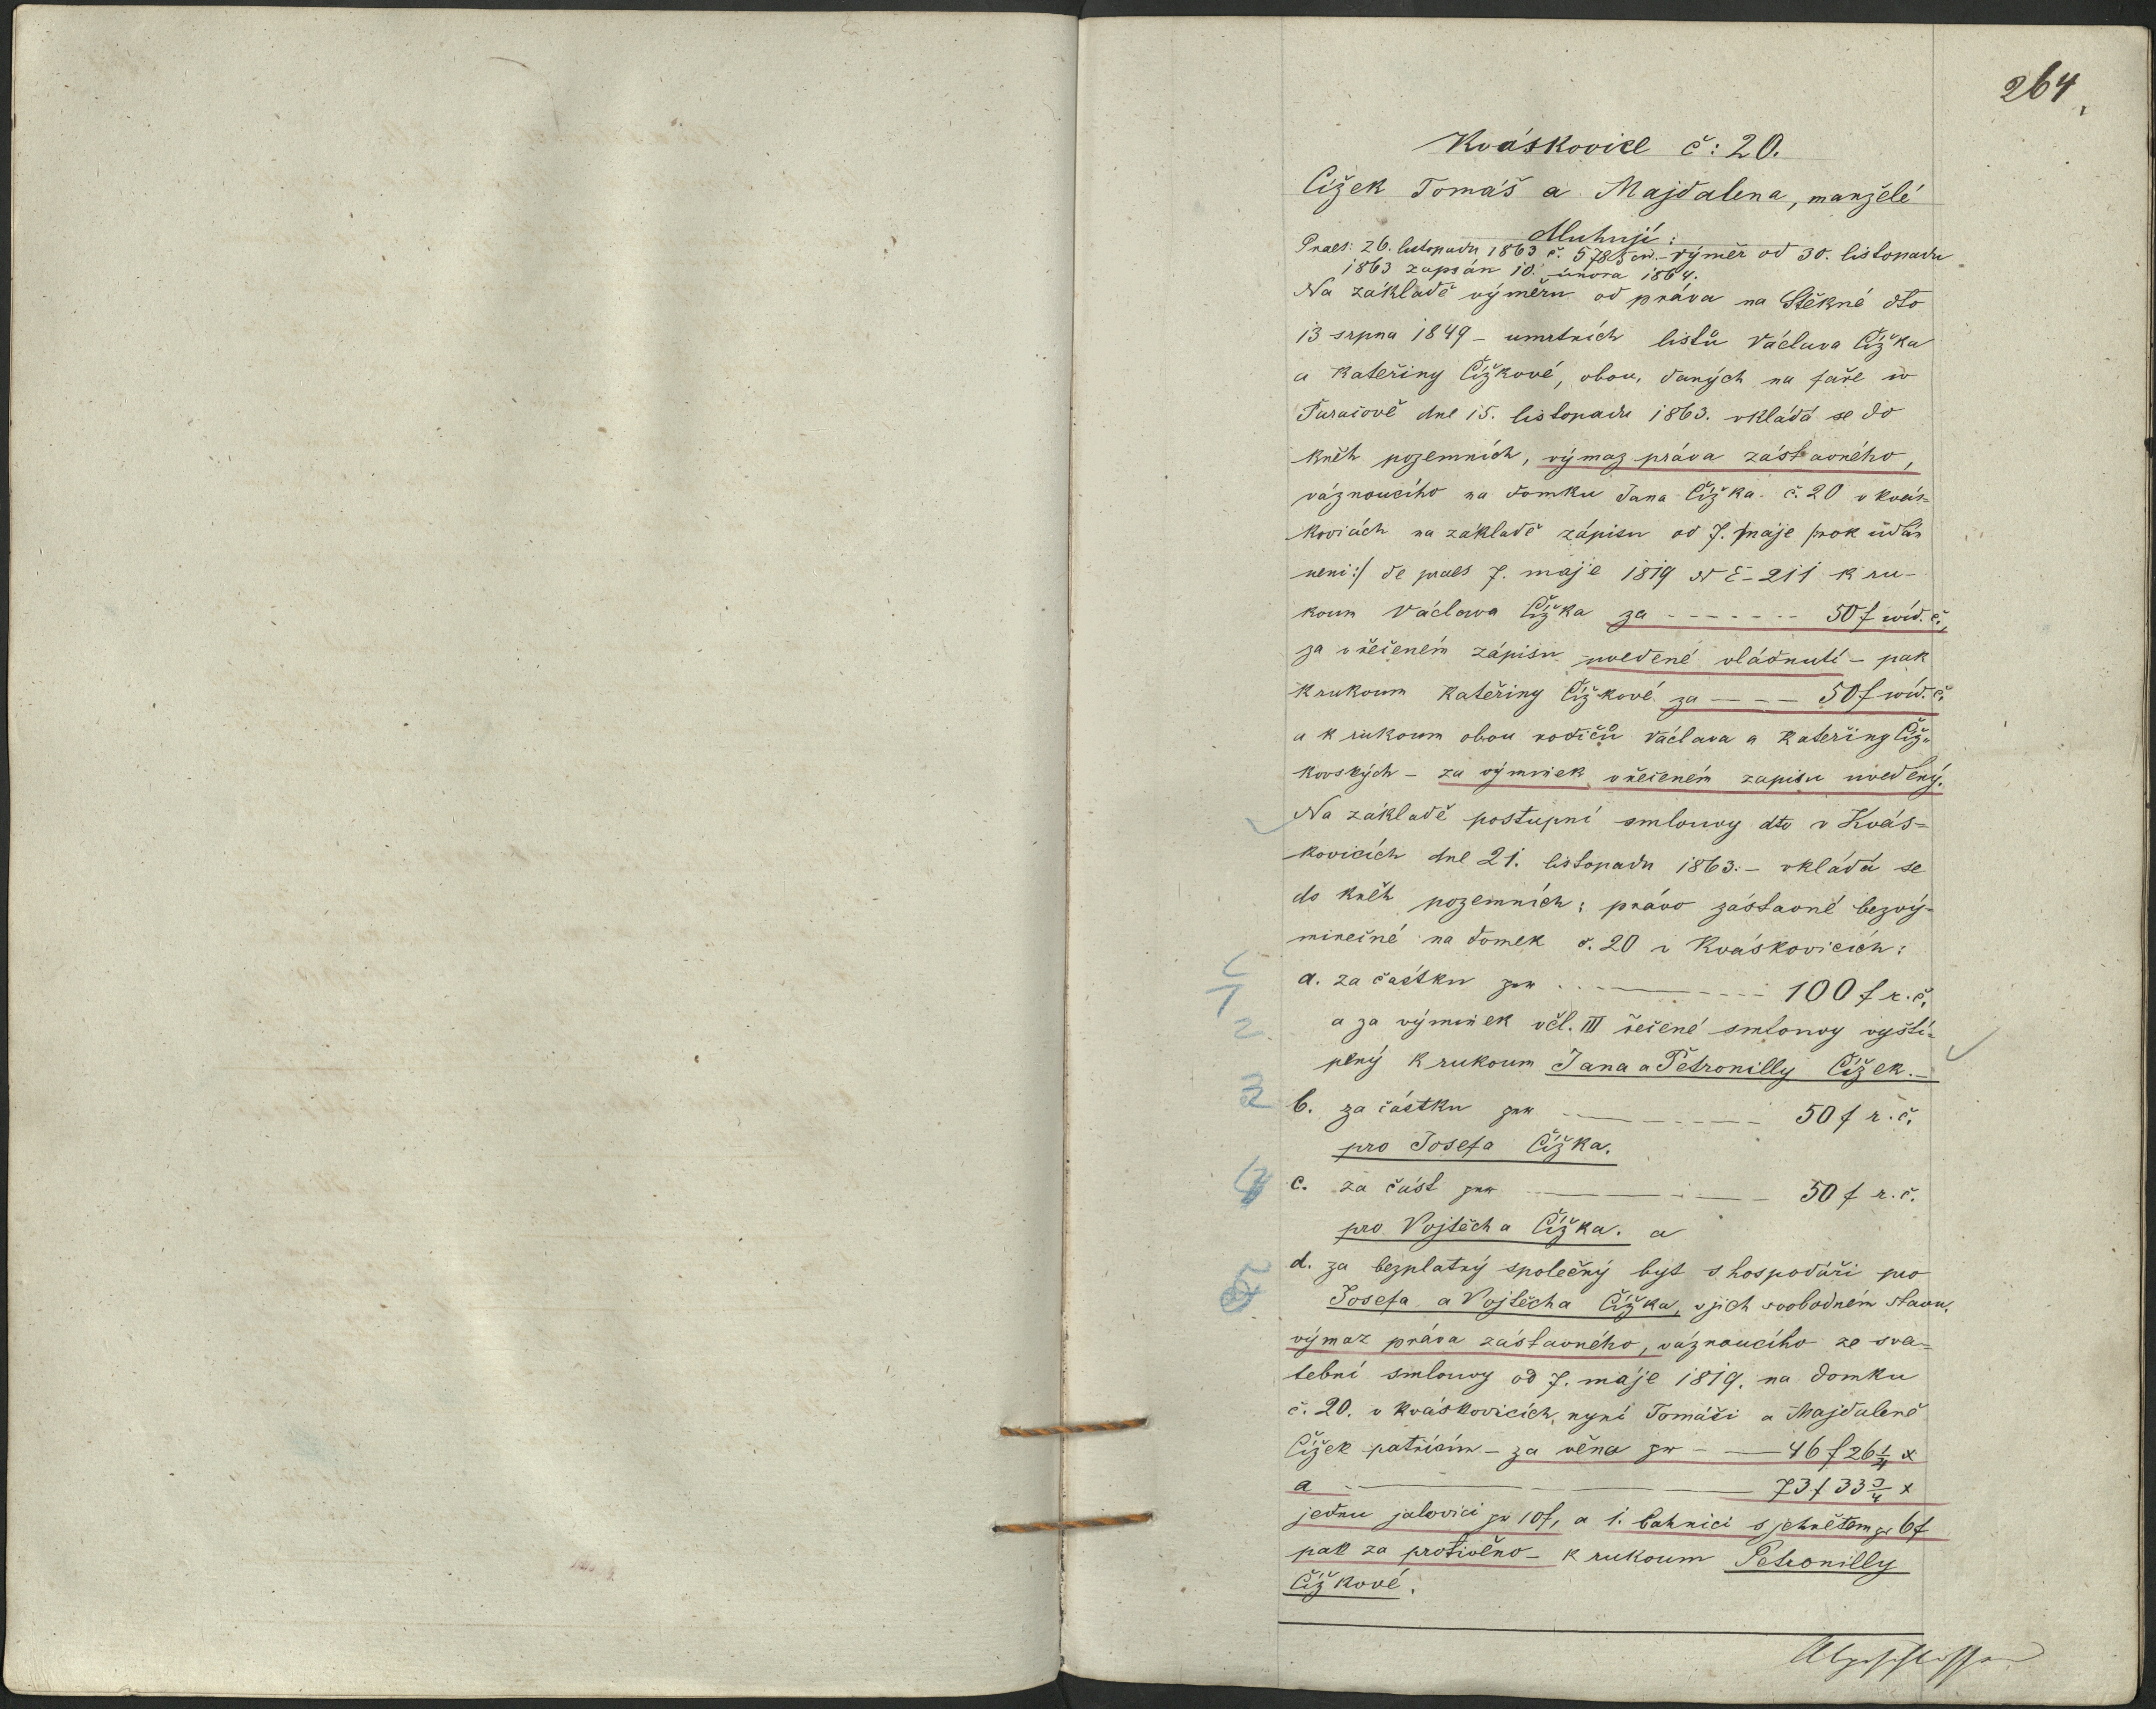 264
Kváskovice č: 20.
Čížek Tomáš a Majdalena, manželé
dluhují:
Praes: 26. listopadu 1863 č. 5785 civ. – výměr od 30. listopadu
1863 zapsán 10. února 1864.
Na základě výměru od práva na Štěkné dto
13 srpna 1849 – umrtních listů Václava Čížka
a Kateřiny Čížkové, obou, daných na faře w
Paračově dne 15. listopadu 1863. vkládá se do
kněh pozemních, výmaz práva zástavného,
váznoucího na domku Jana Čížka č. 20 v Kvás-
kovicích na základě zápisu od 7. máje /:rok udán
není:/ de praes 7. máje 1819 NE – 211 k ru-
koum Václawa Čížka za ------- 50 f wíd. č.,
za v řečeném zápisu uvedené vládnutí – pak
k rukoum Kateřiny Čížkové za ---- 50 f wíd. č.
a k rukoum obou rodičů Václava a Kateřiny Číž-
kovských – za výminek v řečeném zapisu uvedený.
Na základě postupní smlouvy dto v Kvás=
kovicích dne 21. listopadu 1863. – vkládá se
do kněh pozemních: právo zástavné bezvý-
minečné na domek č. 20 v Kváskovicích:
a. za částku per ------- 100 f r. č.
a za výminek v čl. III řečené smlouvy vyští-
plný k rukoum Jana a Petronilly Čížek. –
b. za částku per ------- 50 f r. č.
pro Josefa Čížka.
c. za část per ------- 50 f r. č.
pro Vojtěcha Čížka. a
d. za bezplatný společný byt s hospodáři pro
Josefa a Vojtěcha Čížka, v jich svobodném stavu,
výmaz práva zástavného, váznoucího ze sva=
tební smlouvy od 7. máje 1819. na domku
č. 20. v Kváskovicích, nyní Tomáši a Majdaleně
Čížek patřícím – za věno pr – — 46 f 26 1/4 x
a ------- 73 f 33 3/4 x
jednu jalovici pr 10 f, a 1. bahnici s jehnětem pr 6 f
pak za protivěno – k rukoum Petronilly
Čížkové.
1
2
3
4
5